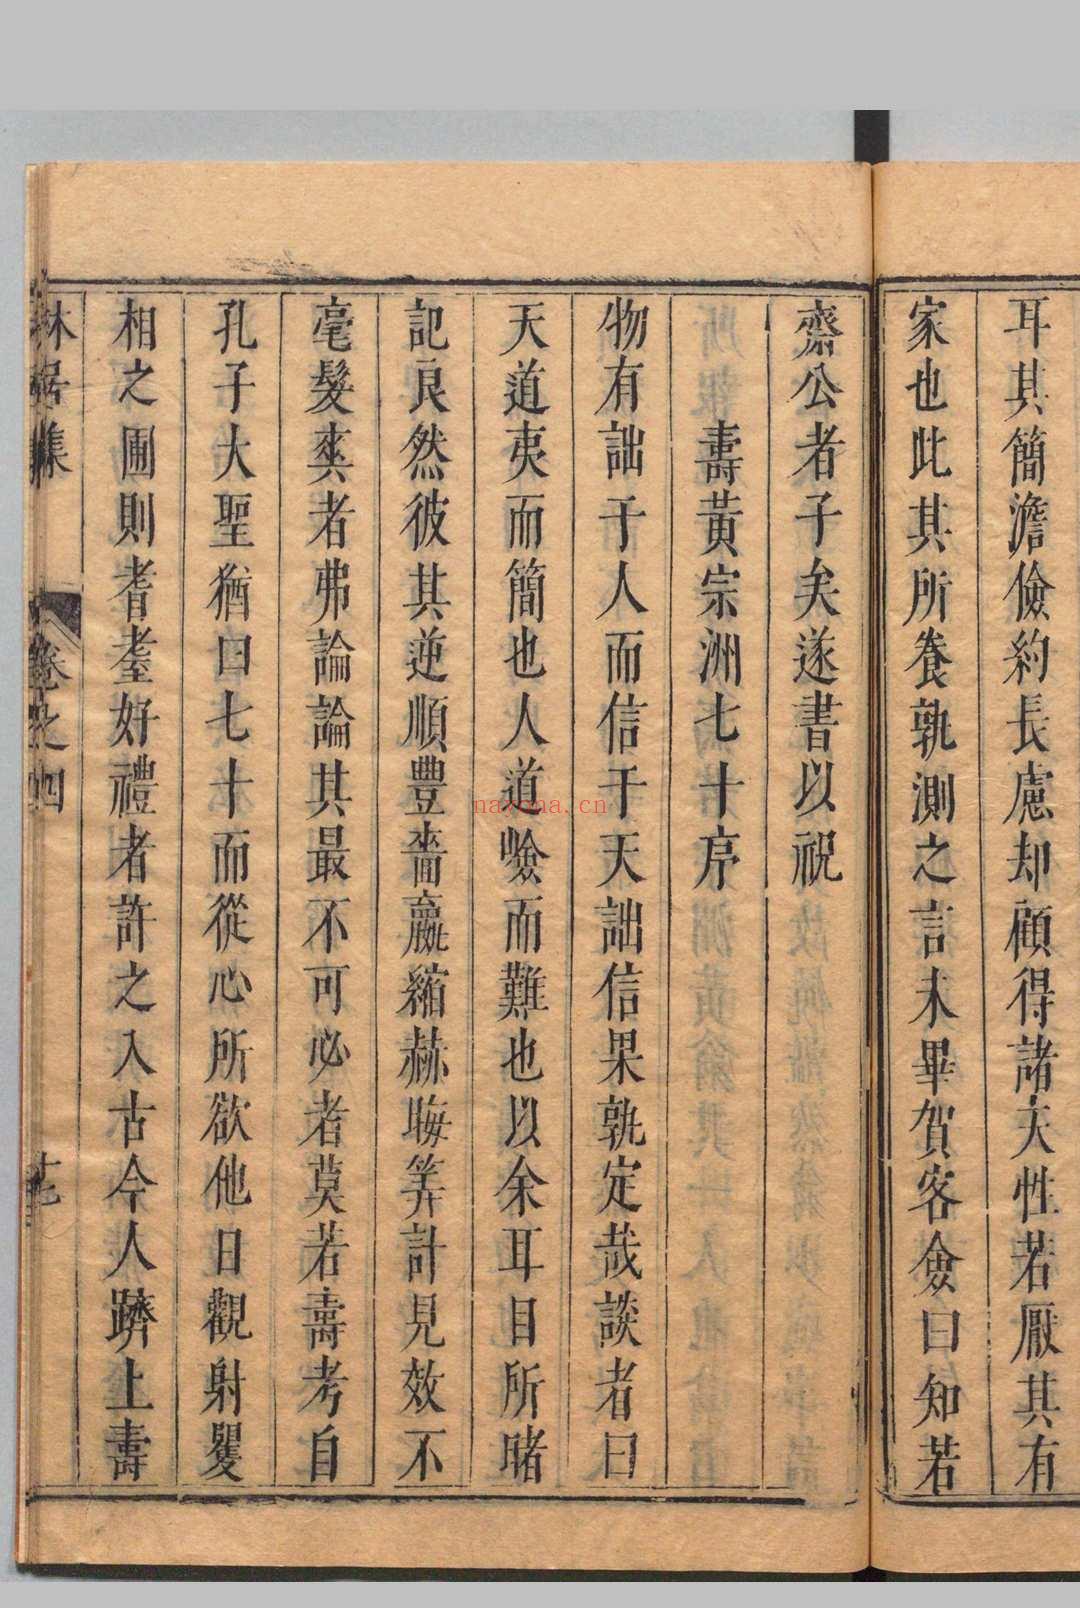 耳其簡澹儉約長慮却顧得諸天性若厭其有
家也此其所養孰測之言未畢賀客僉曰知若
齋公者子矣遂書以祝
壽黃宗洲七十序
物有詘于人而信于天詘信果孰定哉談者曰
天道夷而簡也人道嶮而難也以余耳目所睹
記良然彼其逆順豐嗇贏縮赫晦筭計見效不
毫髮爽者弗論論其最不可必者莫若壽考自
孔子大聖猶曰七十而從心所欲他日觀射矍
相之圃則耆耋好禮者許之入古今人躋上壽
林居集
卷之四
十七
navona.cn